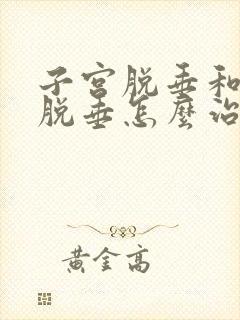 子宫脱垂和
脱垂怎麼治
黄金高